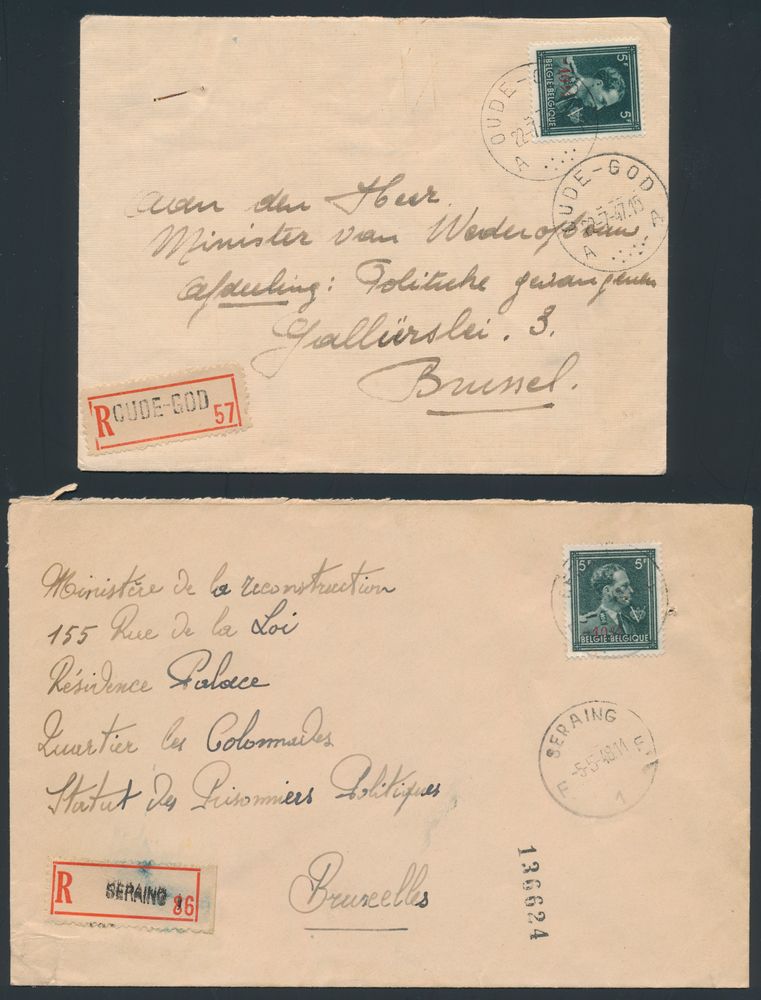 5F 5F
-10%
BELGIE-BELGIQUE
OUDE-G
22-7
A
OUDE-GOD
22-7-47.15
A A
Aan den Heer
Minister van Wederopbouw
Afdeeling: Politieke gevangenen
Galliërslei. 3.
Brussel.
R OUDE-GOD 57
5F 5F
-10%
BELGIE-BELGIQUE
Ministère de la reconstruction
155 Rue de la Loi
Résidence Palace
Quartier les Colonnades
Statut des Prisonniers Politiques
Bruxelles
SERAING
-5-5-48.11
F F
1
R SERAING 1 86
136624